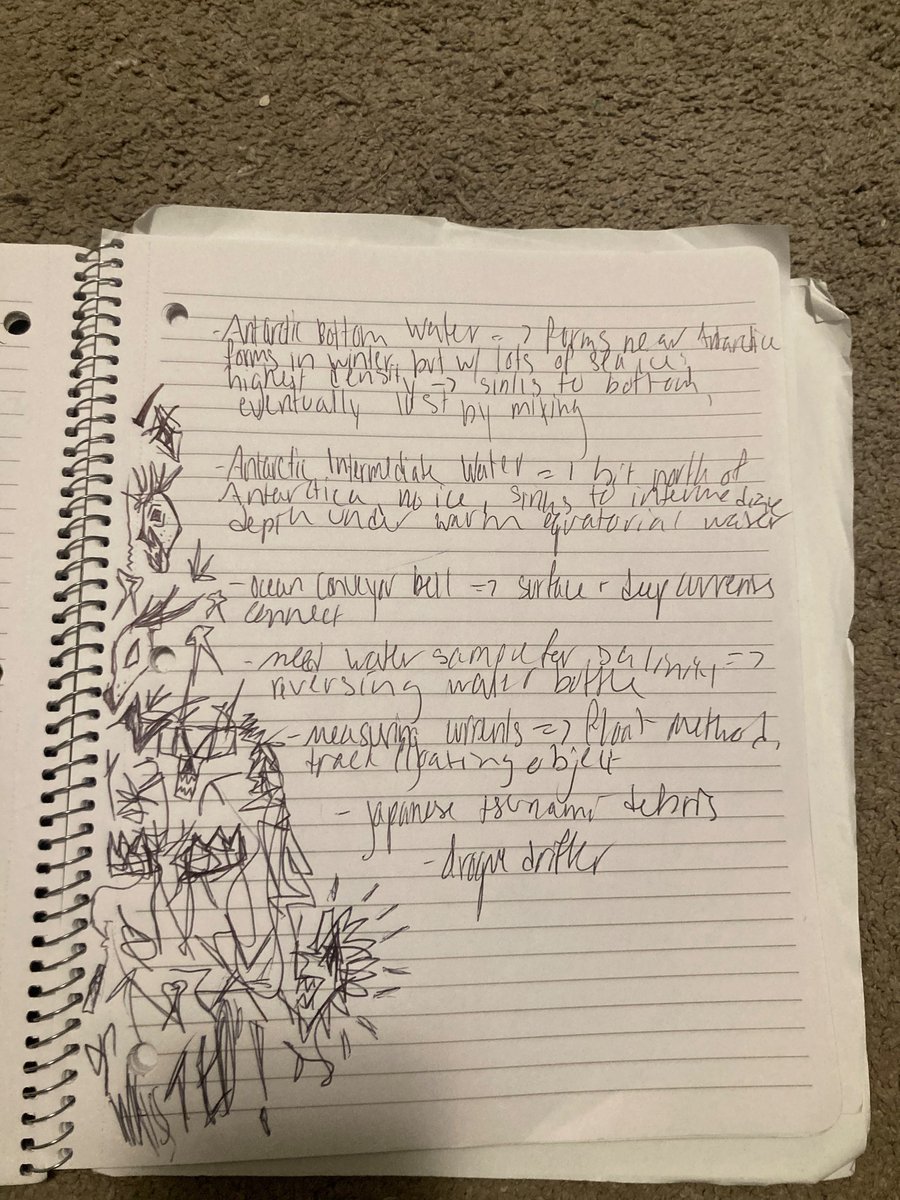 - Antarctic Bottom Water => forms near Antarctica
forms in winter, but w/ lots of sea ice,
highest density -> sinks to bottom,
eventually lost by mixing
- Antarctic Intermediate Water => bit north of
Antarctica no ice, sinks to intermediate
depth under warm equatorial water
- ocean conveyor belt => surface + deep currents
connect
- need water sample for salinity =>
riversing water bottle
- measuring currents => float method,
track floating object
- japanese tsunami debris
- drogue drifter